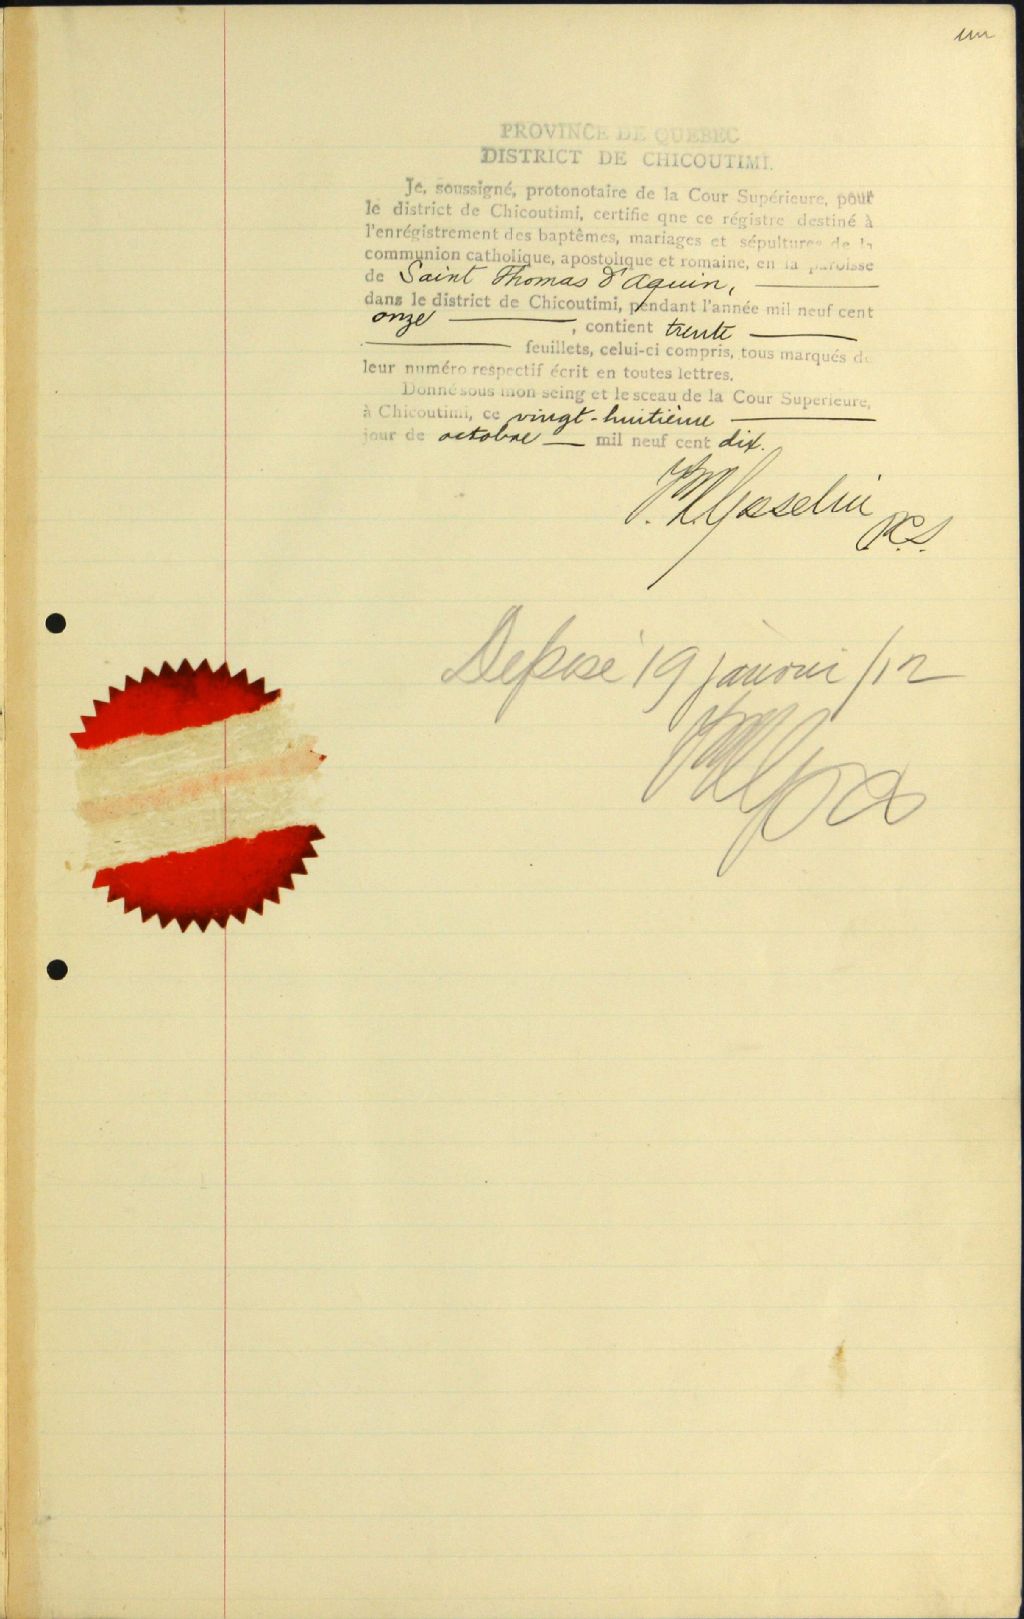 un
PROVINCE DE QUEBEC
DISTRICT DE CHICOUTIMI.
Je, soussigné, protonotaire de la Cour Supérieure, pour
le district de Chicoutimi, certifie qne ce régistre destiné à
l'enrégistrement des baptêmes, mariages et sépultures de la
communion catholique, apostolique et romaine, en la paroisse
de Saint Thomas d'Aquin,
dans le district de Chicoutimi, pendant l'année mil neuf cent
onze , contient trente
feuillets, celui-ci compris, tous marqués de
leur numéro respectif écrit en toutes lettres.
Donné sous mon seing et le sceau de la Cour Superieure,
à Chicoutimi, ce vingt-huitième
jour de octobre mil neuf cent dix.
Gosselin
P.C.S.
Déposé 19 janvier /12